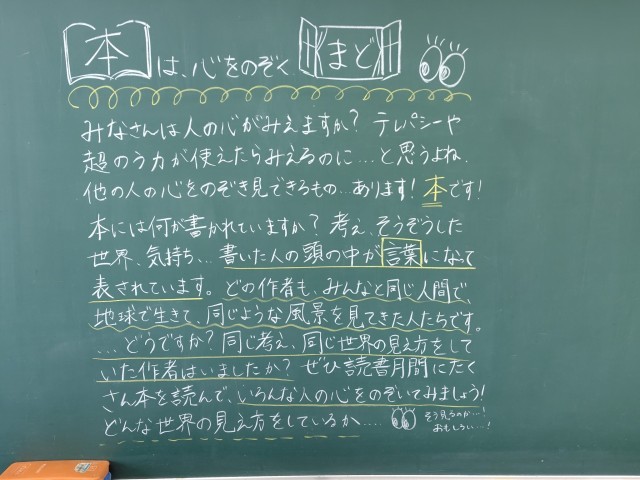 本は、心をのぞくまど
みなさんは人の心がみえますか？テレパシーや
超のう力が使えたらみえるのに…と思うよね。
他の人の心をのぞき見できるもの…あります！本です！
本には何が書かれていますか？考え、そうぞうした
世界、気持ち…書いた人の頭の中が言葉になって
表されています。どの作者も、みんなと同じ人間で、
地球で生きて、同じような風景を見てきた人たちです。
…どうですか？同じ考え、同じ世界の見え方をして
いた作者はいましたか？ぜひ読書月間にたく
さん本を読んで、いろんな人の心をのぞいてみましょう！
どんな世界の見え方をしているか….
そう見るのか…！
おもしろい…！